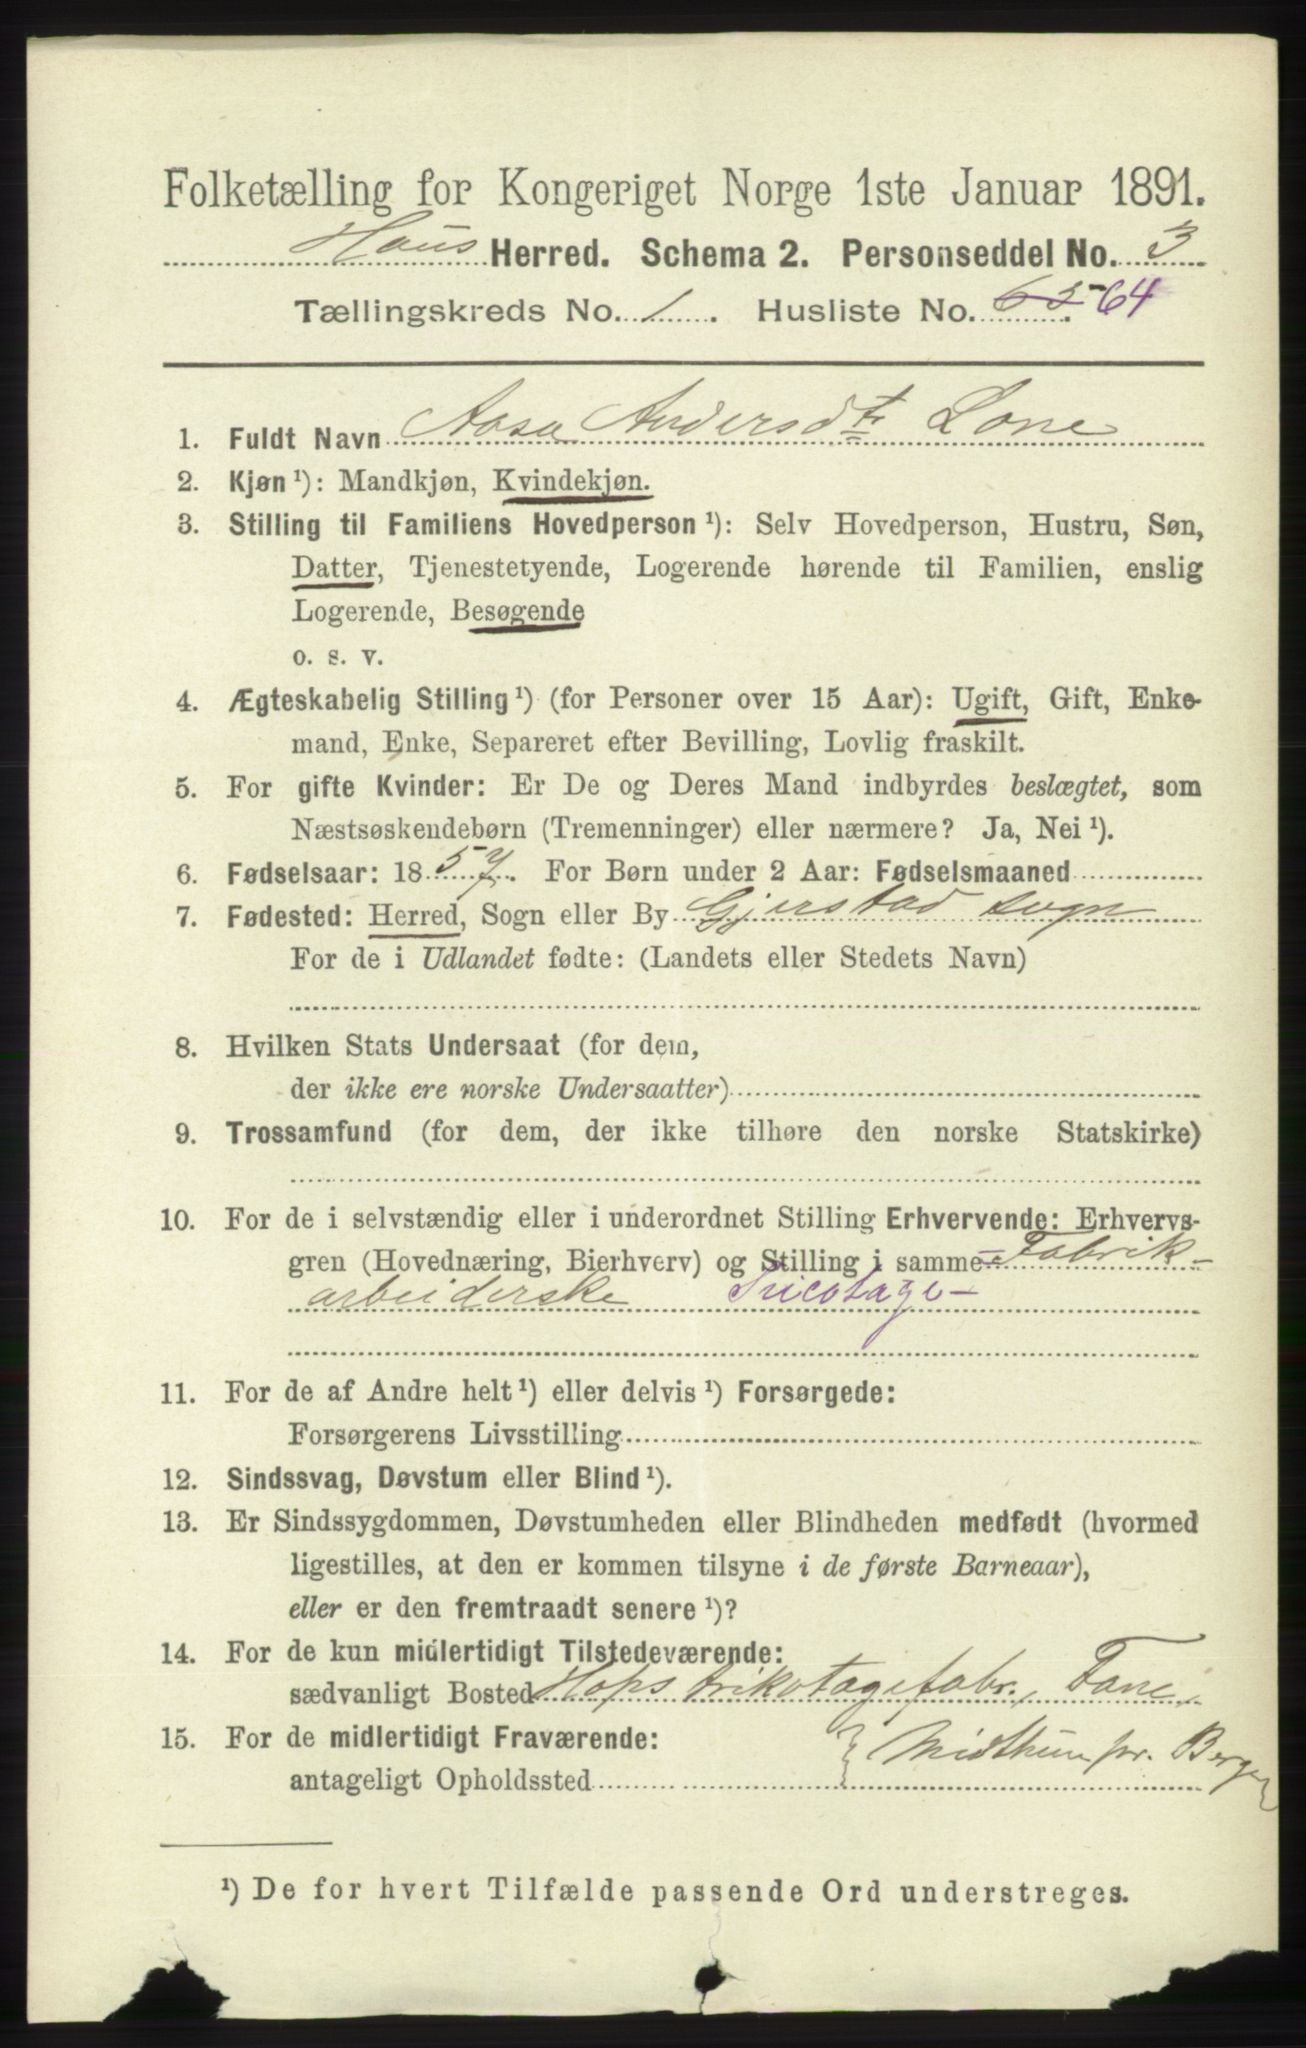 Folketælling for Kongeriget Norge 1ste Januar 1891.
Haus Herred. Schema 2. Personseddel No. 3
Tællingskreds No. 1. Husliste No. 65 64
1. Fuldt Navn Aasa Andersdt Lone
2. Kjøn ¹): Mandkjøn, Kvindekjøn.
3. Stilling til Familiens Hovedperson ¹): Selv Hovedperson, Hustru, Søn,
Datter, Tjenestetyende, Logerende hørende til Familien, enslig
Logerende, Besøgende
o. s. v.
4. Ægteskabelig Stilling ¹) (for Personer over 15 Aar): Ugift, Gift, Enke-
mand, Enke, Separeret efter Bevilling, Lovlig fraskilt.
5. For gifte Kvinder: Er De og Deres Mand indbyrdes beslægtet, som
Næstsøskendebørn (Tremenninger) eller nærmere? Ja, Nei ¹).
6. Fødselsaar: 1857. For Børn under 2 Aar: Fødselsmaaned
7. Fødested: Herred, Sogn eller By Gjerstad sogn
For de i Udlandet fødte: (Landets eller Stedets Navn)
8. Hvilken Stats Undersaat (for dem,
der ikke ere norske Undersaatter)
9. Trossamfund (for dem, der ikke tilhøre den norske Statskirke)
10. For de i selvstændig eller i underordnet Stilling Erhvervende: Erhvervs-
gren (Hovednæring, Bierhverv) og Stilling i samme Fabrik-
arbeiderske Tricotage-
11. For de af Andre helt ¹) eller delvis ¹) Forsørgede:
Forsørgerens Livsstilling
12. Sindssvag, Døvstum eller Blind ¹).
13. Er Sindssygdommen, Døvstumheden eller Blindheden medfødt (hvormed
ligestilles, at den er kommen tilsyne i de første Barneaar),
eller er den fremtraadt senere ¹)?
14. For de kun midlertidigt Tilstedeværende:
sædvanligt Bosted Hops trikotagefabr., Fane,
15. For de midlertidigt Fraværende: } Midthun pr. Bergen
antageligt Opholdssted
¹) De for hvert Tilfælde passende Ord understreges.